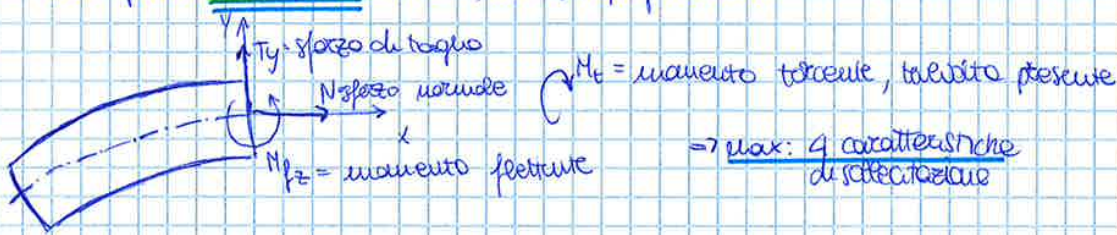 y
Ty = sforzo di taglio
N sforzo normale
x
Mfz = momento flettente
Mt = momento torcente, talvolta presente
=> max: 4 caratteristiche
di sollecitazione